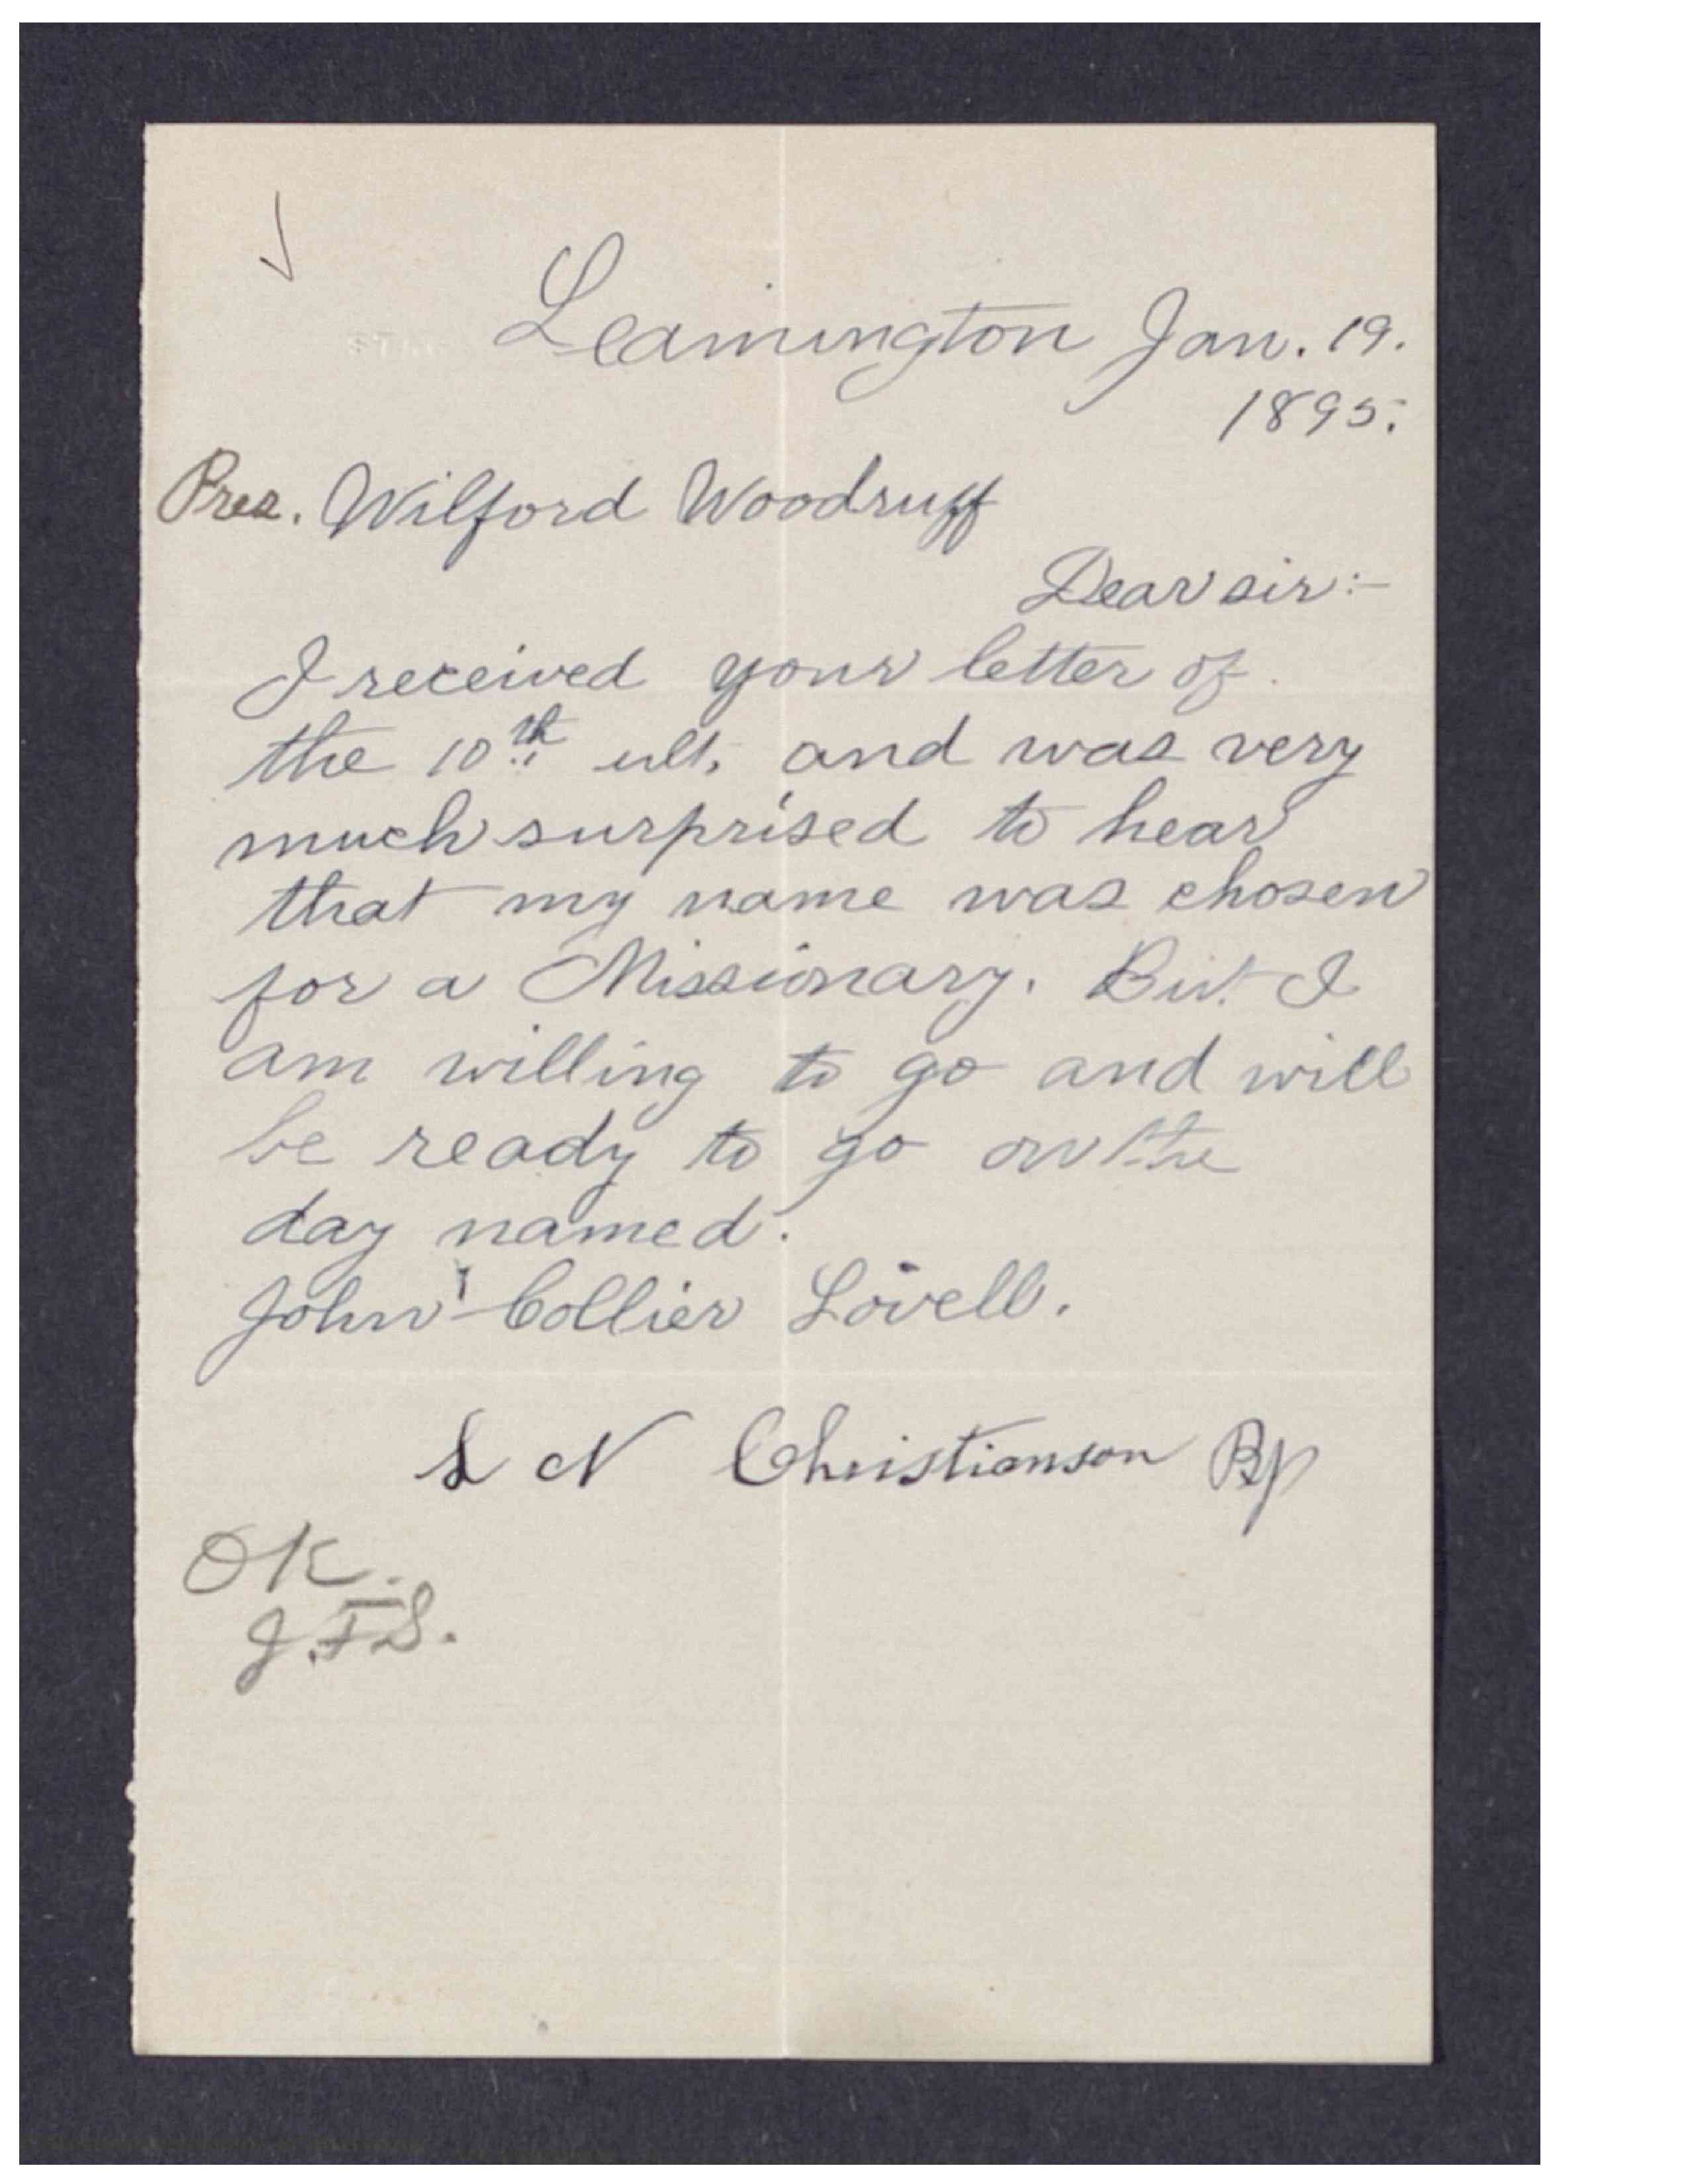 Leamington Jan. 19.
1895.
Pres. Wilford Woodruff
Dear sir:-
I received your letter of
the 10th ult. and was very
much surprised to hear
that my name was chosen
for a Missionary. But I
am willing to go and will
be ready to go on the
day named.
John Collier Lovell.
L N Christianson Bp
OK.
J.F.S.